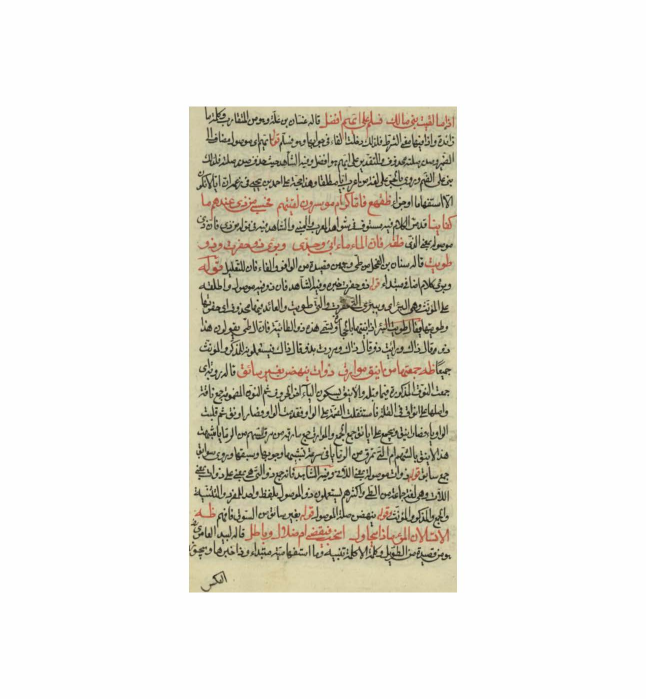 إذا ما لقيت بني مالك فسلم على أيهم أفضل قاله غسان بن علة وهو من المتقارب وكلمة ما
زائدة وإذا فيها معنى الشرط فلذلك دخلت الفاء في جوابها وهو فسلم قوله أيهم أي موصولة مضاف إلى
الضمير وصدر صلته محذوف والتقدير على أيهم هو أفضل وفيه الشاهد حيث حذف صدر صلته فلذلك
بني على الضم وروي بالجر على لغة من أعرب أيا مطلقا وهذا حجة على أحمد بن يحيى في زعمه أن أيا لا تكون
إلا استفهاما أو جزاء ظقهع فإما كرام موسرون لقيتهم فحسبي من ذي عندهم ما
كفانيا قد مر الكلام فيه مستوفى في شواهد المعرب والمبني والشاهد في ذي قوله من ذي فإن ذي
موصولة بمعنى الذي ظقه فإن الماء ماء أبي وجدي وبئري ذو حفرت وذو
طويت قاله سنان بن الفحل من طيء وهو من قصيدة من الوافر والفاء فإن للتعليل قوله
وبئري كلام إضافي مبتدأ قوله ذو حفرت خبره وفيه الشاهد فإن ذو فيه موصولة وأطلقه
على المؤنث وهي البئر أي وبئري التي حفرت والتي طويت والعائد فيهما محذوف أي حفرتها
وطويتها يقال طويت البئر إذا بنيتها بالحجارة وتسمى هذه ذو الطائية فإن الطي يقولون هذا
ذو قال ذاك ورأيت ذو قال ذاك ومررت بذو قال ذاك فيستعملون للمذكر والمؤنث
جميعا ظه جمعتها من أينق موارق ذوات ينهضن بغير سائق قاله رؤبة أي
جمعت النوق المذكورة فيما قبله والأينق بسكون الياء آخر الحروف وضم النون المضمومة جمع ناقة
وأصلها على أنوق في القلة فاستثقلت الضمة على الواو فقدمت الواو فصار أونق ثم قلبت
الواو ياء فصار أينق ويجمع على أيانق جمع الجمع والموارق جمع مارقة من مرق السهم من الرمية إذا شبهت
هذا الأينق بالسهام التي تمرق من الرمايا في سرعة مشيها وجريها وسبقها وروي سوابق
جمع سابق قوله ذوات موصولة بمعنى اللاتي وفيه الشاهد فإنه جمع ذو التي هي بمعنى على ذوات بمعنى
اللاتي وهي لغة جماعة من الطيء وأكثرهم يستعملون ذو الموصولة بلفظ واحد للمفرد والتثنية
والجمع والمذكر والمؤنث قوله ينهضن صلة الموصول قوله بغير سائق من السوق فافهم ظقه
ألا تسألان المرء ماذا يحاول أنحب فيقضى أم ضلال وباطل قاله لبيد العامري
وهو من قصيدة من الطويل وكلمة ألا كلمة تنبيه وما استفهامية مبتدأ وذا خبرها ويجوز
العكس